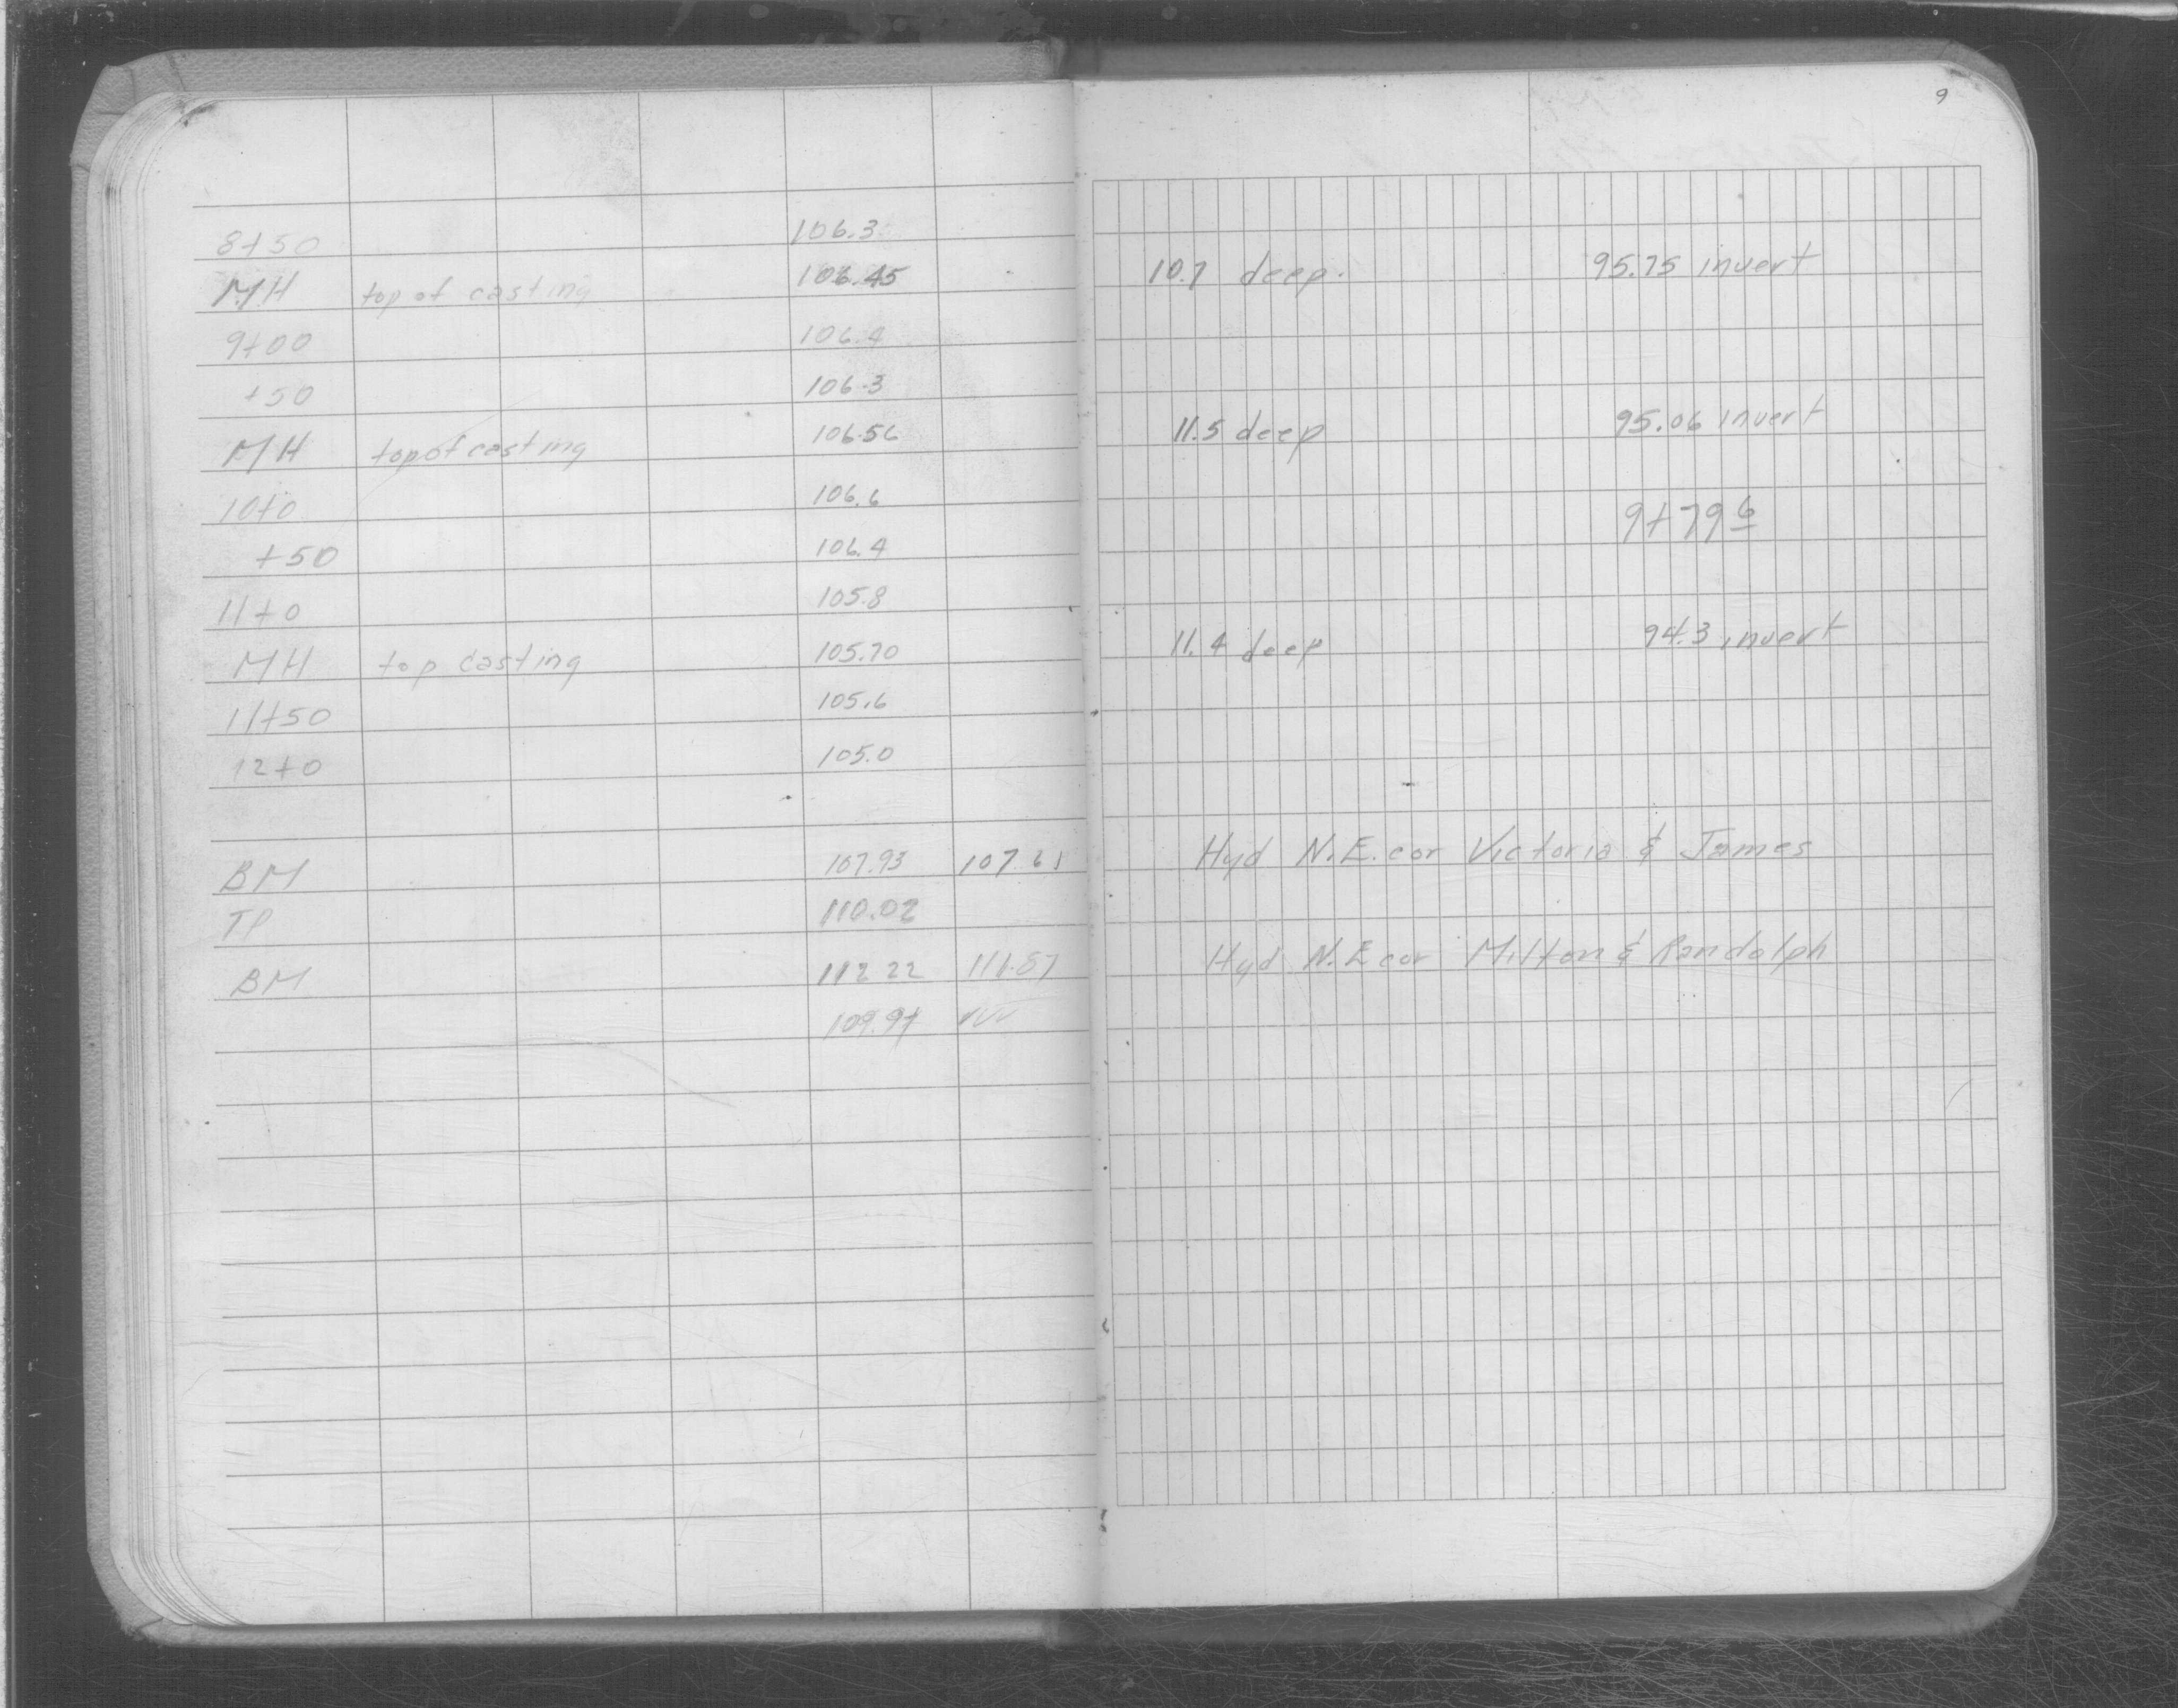 9
8+50 106.3
MH top of casting 106.45 10.7 deep. 95.75 invert
9+00 106.4
+50 106.3
MH top of casting 106.56 11.5 deep 95.06 invert
10+0 106.6
9+79 6
+50 106.4
11+0 105.8
MH top casting 105.70 11.4 deep 94.3 invert
11+50 105.6
12+0 105.0
BM 107.93 107.61 Hyd N.E. cor Victoria & James
TP 110.02
BM 112 22 111.87 Hyd N.E cor Milton & Randolph
109.94